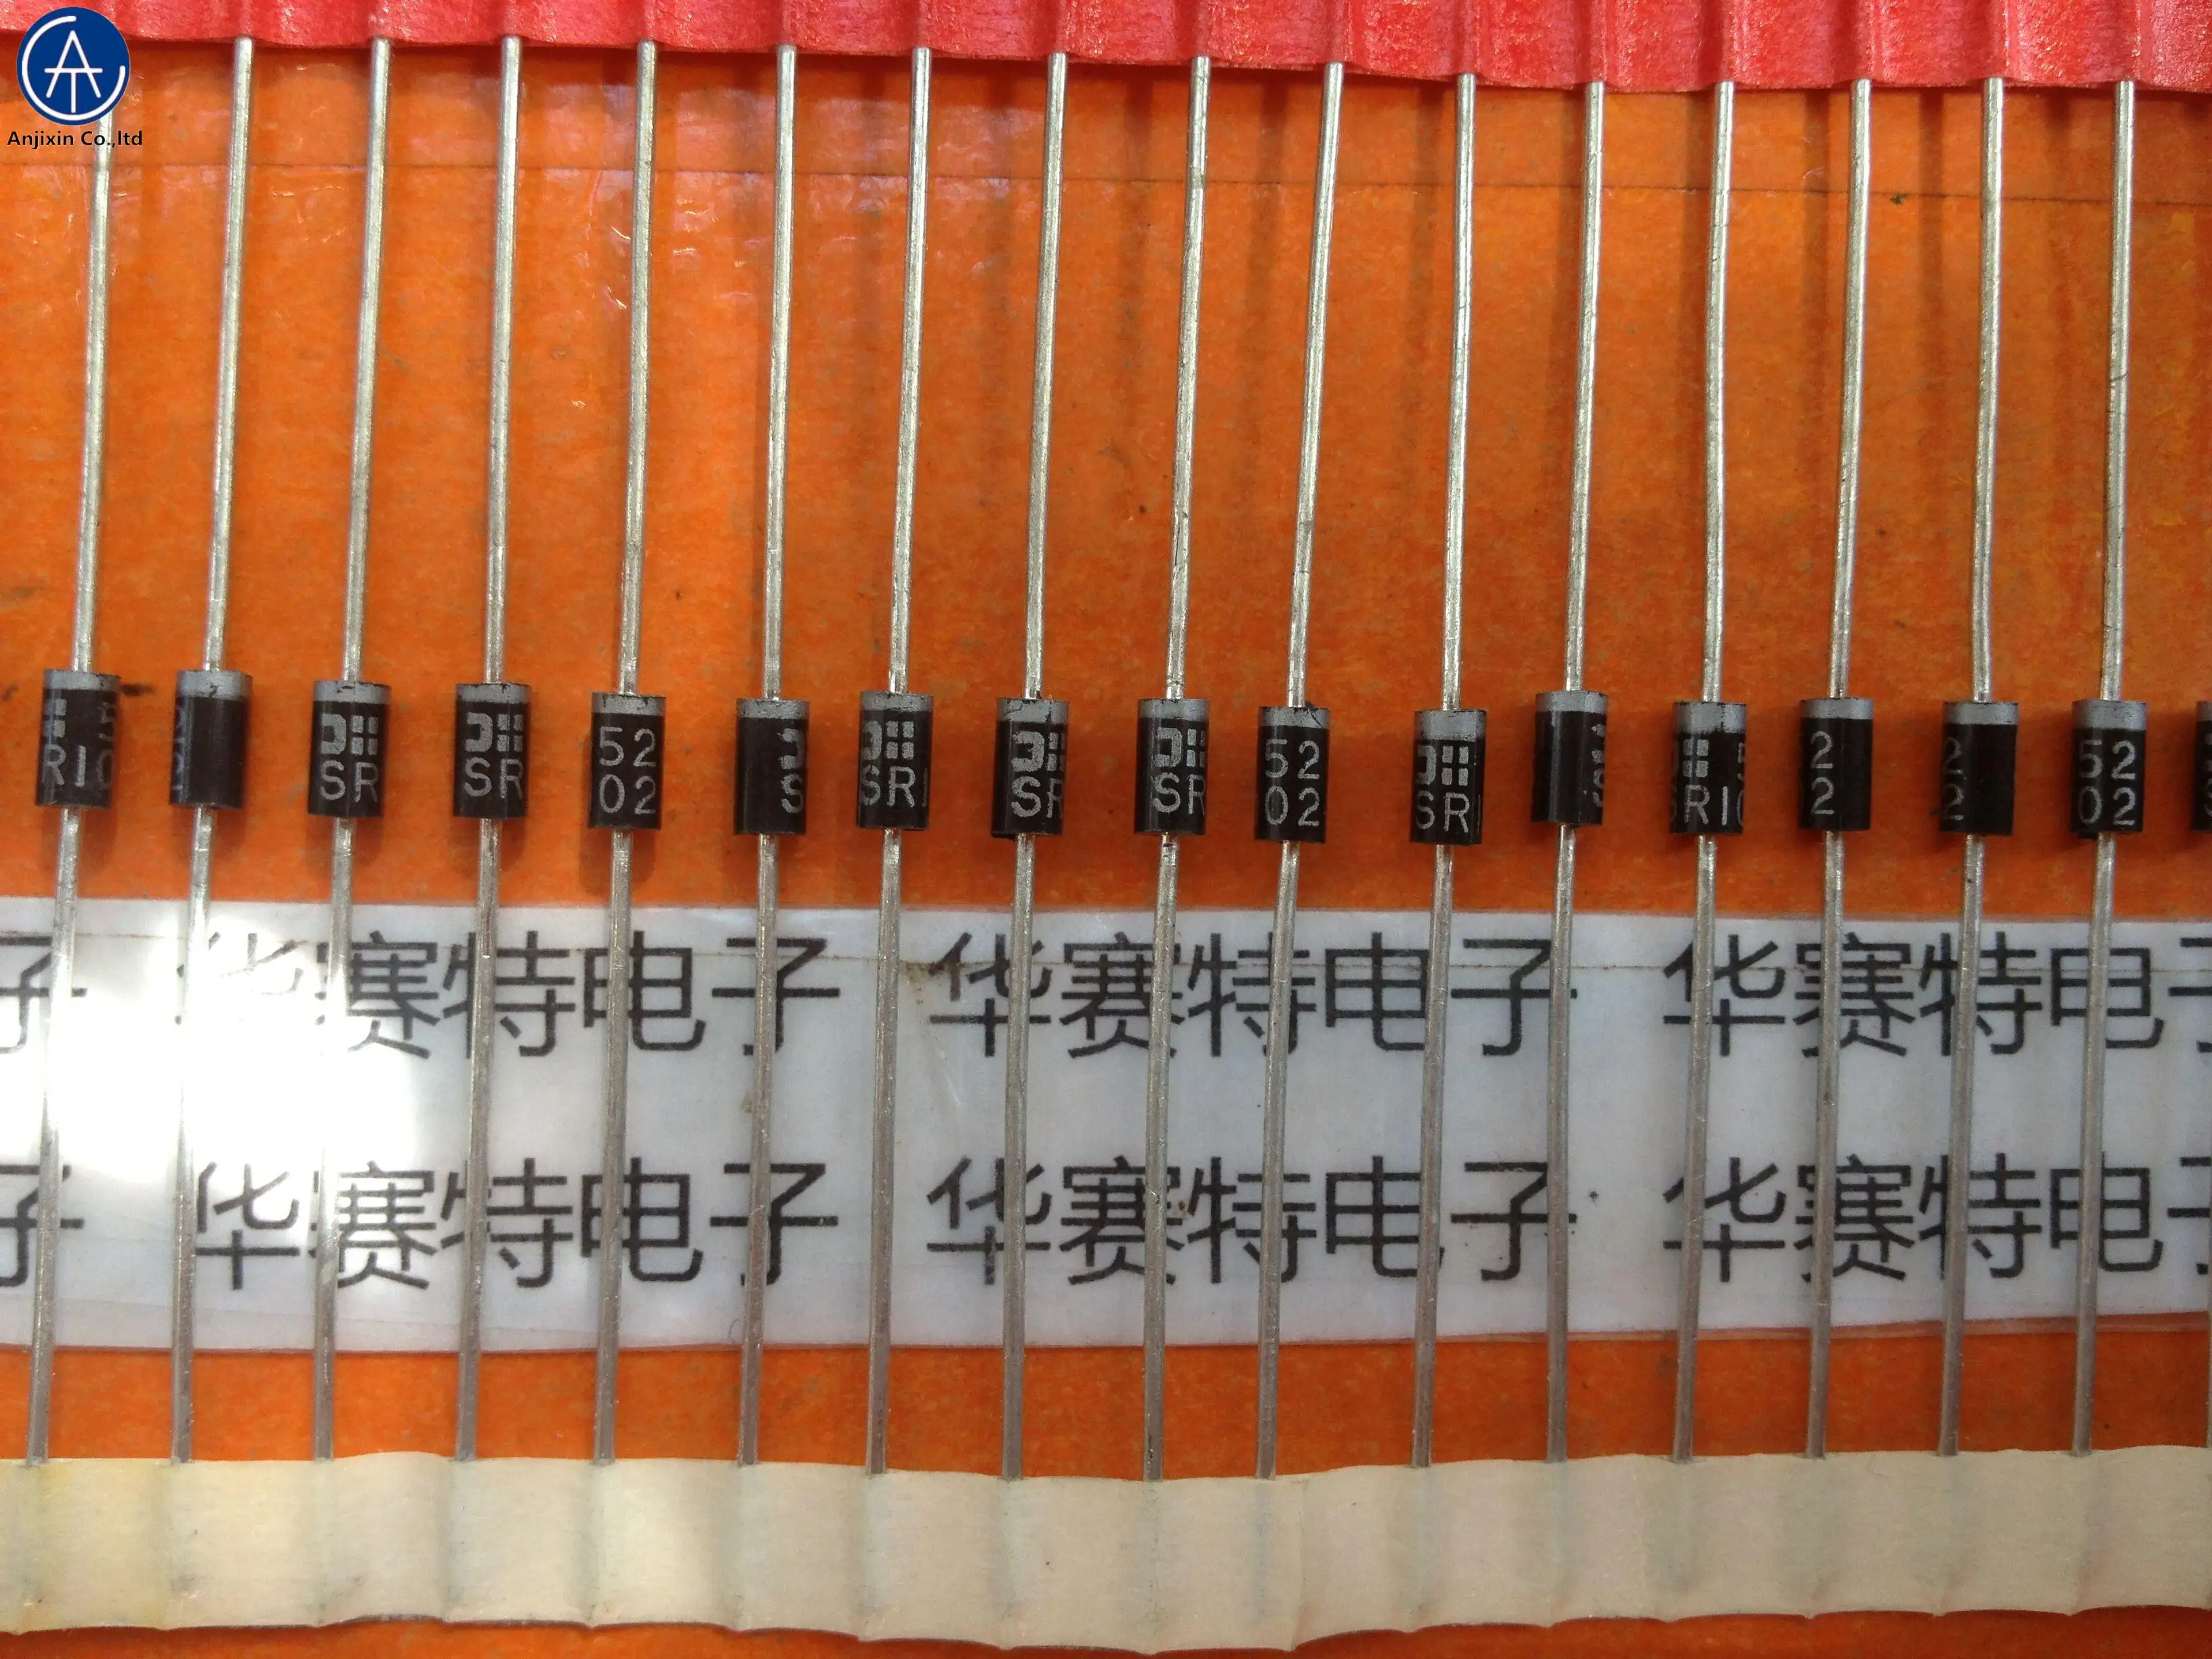 Anjixin Co.,ltd
5
RI0
SR
SR
52
02
S
SR
SR
SR
52
02
SR
SRI0
2
2
2
2
52
02
子 华赛特电子 华赛特电子 华赛特电子
子 华赛特电子 华赛特电子 华赛特电子